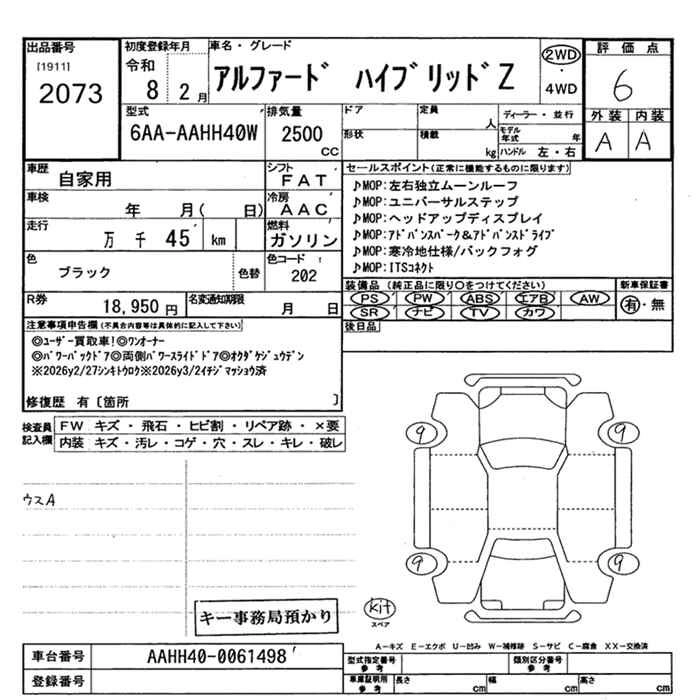 出品番号
[1911]
2073
初度登録年月
令和
8 2月
車名・グレード
アルファード ハイブリッドZ
2WD
・
4WD
評価点
6
外装 内装
A A
型式
6AA-AAHH40W
排気量
2500
cc
ドア
定員
人
形状
積載
kg
ディーラー・並行
モデル年式 年
ハンドル 左・右
車歴
自家用
シフト
FAT
車検
年 月( 日)
冷房
AAC
走行
万 千 45 km
燃料
ガソリン
色
ブラック
色替
色コード
202
R券
18,950円
名変通知期限
月 日
セールスポイント(正常に機能するものに限ります)
♪MOP:左右独立ムーンルーフ
♪MOP:ユニバーサルステップ
♪MOP:ヘッドアップディスプレイ
♪MOP:アドバンスパーク&アドバンスドライブ
♪MOP:寒冷地仕様/バックフォグ
♪MOP:ITSコネクト
装備品(純正品に限り○をつけてください)
PS PW ABS エアB AW
SR ナビ TV カワ
新車保証書
有・無
後日品
注意事項申告欄(不具合内容等は具体的に記入して下さい)
◎ユーザー買取車!◎ワンオーナー
◎パワーバックドア◎両側パワースライドドア◎オクダケジュウデン
※2026y2/27シンキトウロク※2026y3/24イチジマッショウ済
修復歴 有〔箇所 〕
検査員記入欄
FW キズ・飛石・ヒビ割・リペア跡・×要
内装 キズ・汚レ・コゲ・穴・スレ・キレ・破レ
ウスA
9 9
9 9
キー事務局預かり
Kit
スペア
A-キズ E-エクボ U-凹み W-補修跡 S-サビ C-腐食 XX-交換済
車台番号
AAHH40-0061498
登録番号
型式指定番号
参考
類別区分番号
参考
車庫証明用
参考
長さ cm
幅 cm
高さ cm